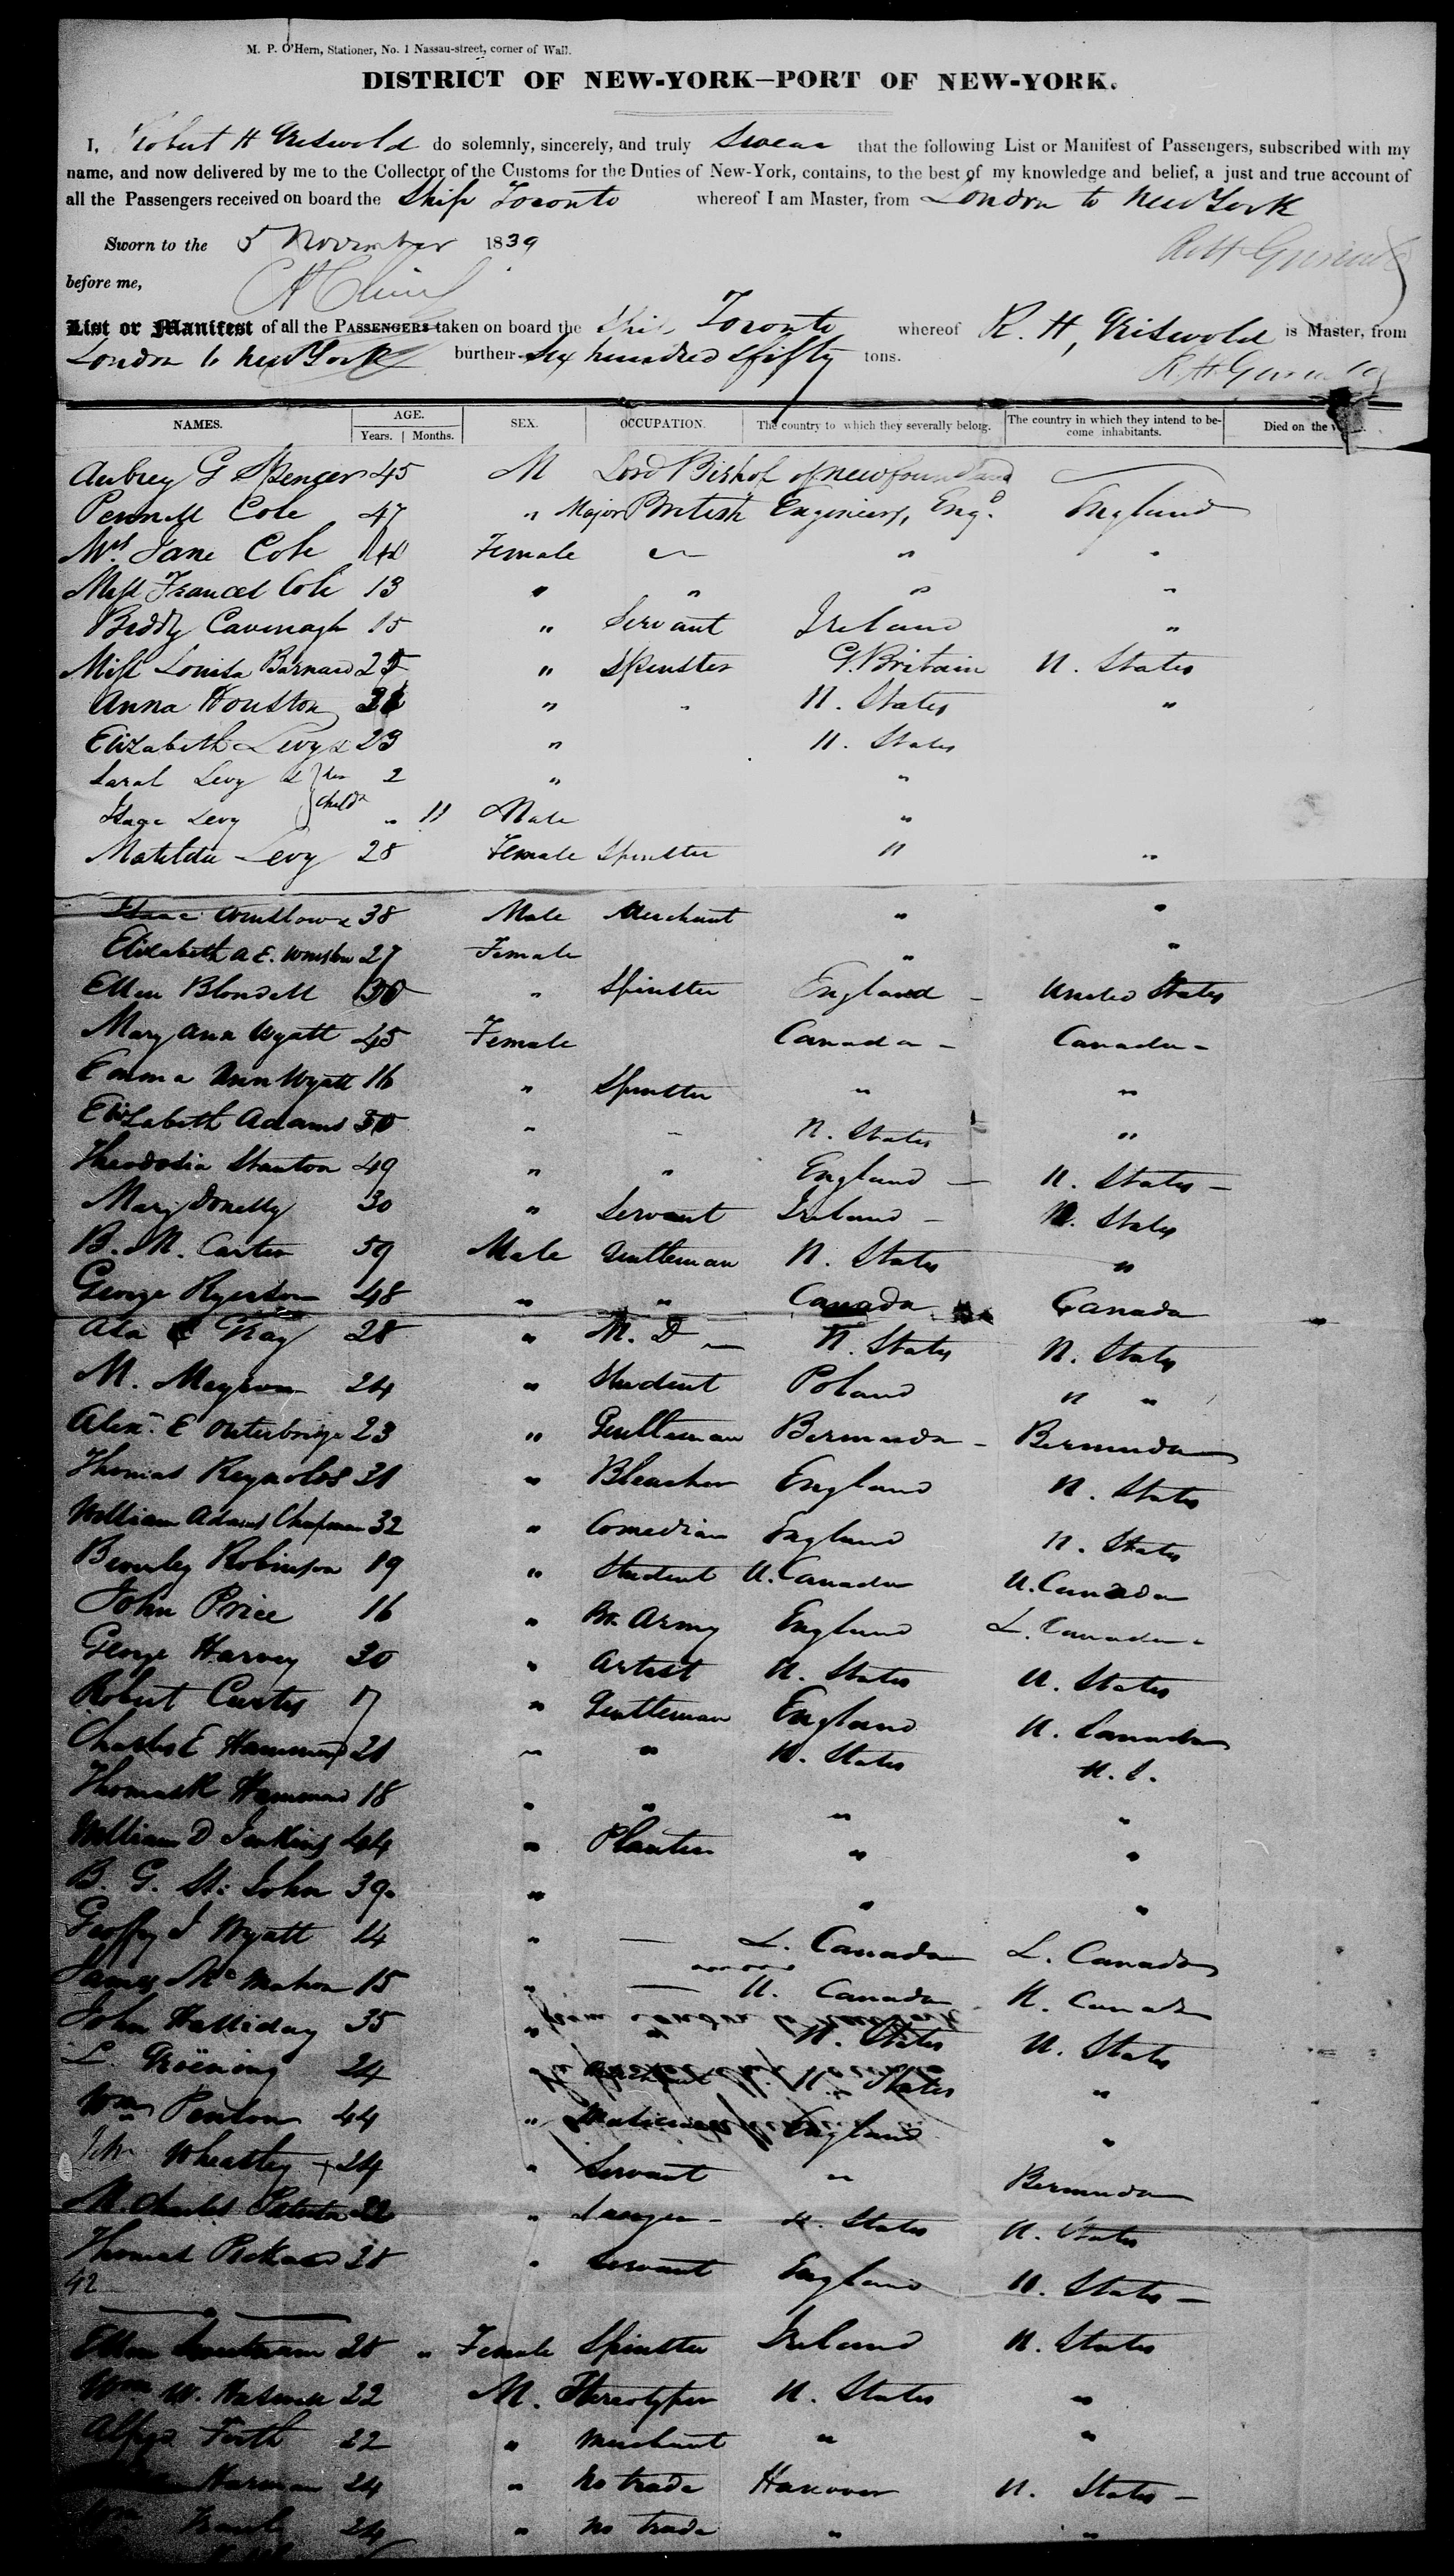 M. P. O'Hern, Stationer, No. 1 Nassau-street, corner of Wall.
DISTRICT OF NEW-YORK—PORT OF NEW-YORK.
I, Robert H Griswold do solemnly, sincerely, and truly Swear that the following List or Manifest of Passengers, subscribed with my
name, and now delivered by me to the Collector of the Customs for the Duties of New-York, contains, to the best of my knowledge and belief, a just and true account of
all the Passengers received on board the Ship Toronto whereof I am Master, from London to New York
Sworn to the 5 November 1839
before me,
List or Manifest of all the PASSENGERS taken on board the Ship Toronto whereof R. H, Griswold is Master, from
London to New York burthen Six hundred & fifty tons.
NAMES. AGE. Years. Months. SEX. OCCUPATION. The country to which they severally belong. The country in which they intend to become inhabitants. Died on the
Aubrey G Spencer 45 M Lord Bishop of Newfoundland
Pennell Cole 47 " Major British Engineers, Eng. England
Mrs. Jane Cole Female " "
Miss Frances Cole 13 " " " "
Biddy Cavenagh 15 " Servant Ireland "
Miss Louisa Barnard 25 " Spinster G. Britain U. States
Anna Houston " " U. States "
Elizabeth Levy & 23 " U. States
Sarah Levy & her 2 " "
Isaac Levy Childn " 11 Male "
Matilda Levy 28 Female Spinster " "
Isaac Winslow & 38 Male Merchant " "
Elizabeth A E. Winslow 27 Female " "
Ellen Blondell 30 " Spinster England - United States
Mary Ann Wyatt 45 Female Canada - Canada -
Emma Ann Wyatt 16 " Spinster " "
Elizabeth Adams 30 " " U. States "
Theodosia Stanton 49 " " England — U. States —
Mary Donelly 30 " Servant Ireland — U. States
B. M. Carter 59 Male Gentleman U. States "
George Ryerson 48 " " Canada Canada
Asa Gray 28 " M. D — U. States U. States
M. Mayson 24 " Student Poland " "
Alexr. E Outerbridge 23 " Gentleman Bermuda - Bermuda
Thomas Reynolds 31 " Bleacher England U. States
William Adams Chapman 32 " Comedian England U. States
Beverley Robinson 19 " Student U. Canada U. Canada
John Price 16 " Br. Army England L. Canada -
George Harvey 30 " Artist U. States U. States
Robert Curtis 17 " Gentleman England U. Canada
Charles E Hammond 21 " " U. States U. S.
Thomas R Hammond 18 " " " "
William D Jenkins 44 " Planter " "
B. G. St. John 39 " " "
Geoffry J Wyatt 14 " — L. Canada L. Canada
James Mc Mahon 15 " — U. Canada U. Canada
John Halliday 35 " " U. States U. States
L. Gröening 24 States "
Wm Penson 44 " Musician England "
Wheatley 24 " Servant " Bermuda
M. Charles 22 " U. States U. States
Thomas Pickard 28 " Servant England U. States —
42
Ellen 28 " Female Spinster Ireland U. States
Wm W. 22 M. Stereotyper U. States "
Alfred Firth 22 " Merchant " "
Harman 24 " No trade Hanover U. States —
Wm 24 " No trade " "